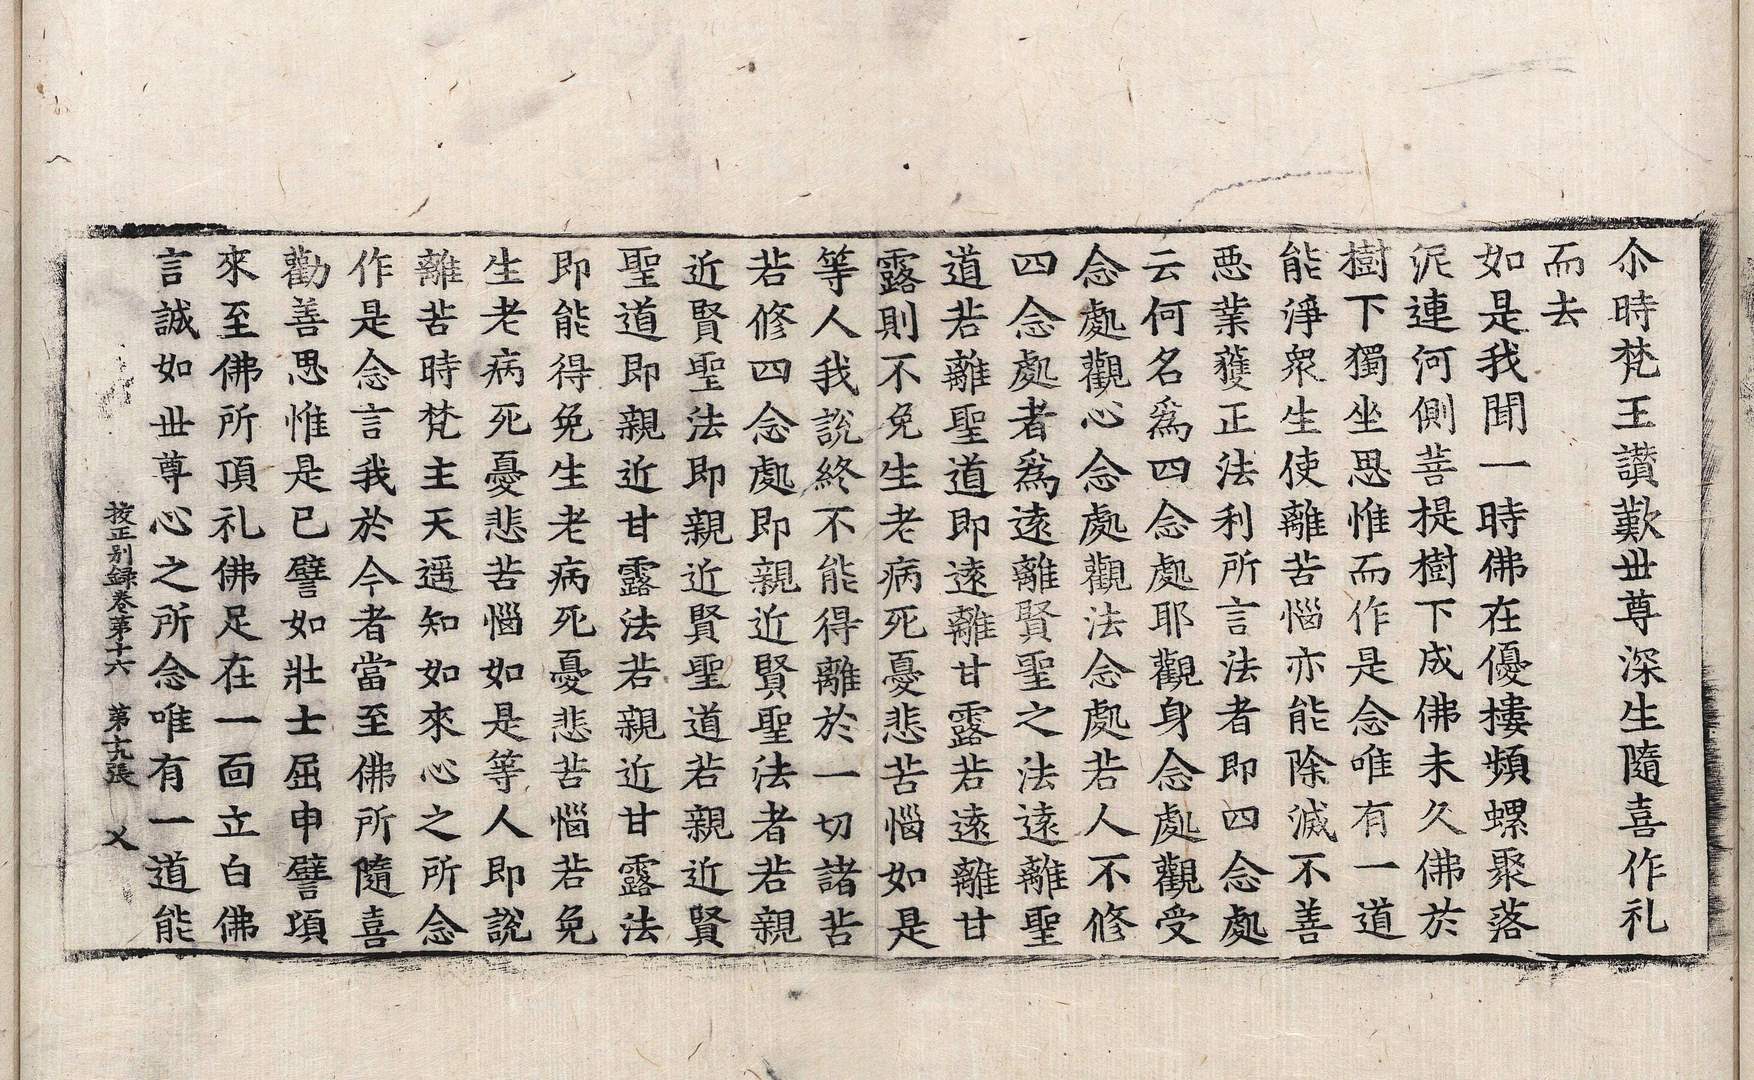 尒時梵王讃歎丗尊深生隨喜作礼
而去
如是我聞一時佛在優摟頻螺聚落
泥連河側菩提樹下成佛未久佛於
樹下獨坐思惟而作是念唯有一道
能淨衆生使離苦惱亦能除滅不善
悪業獲正法利所言法者即四念處
云何名爲四念處耶觀身念處觀受
念處觀心念處觀法念處若人不修
四念處者爲遠離賢聖之法遠離聖
道若離聖道即遠離甘露若遠離甘
露則不免生老病死憂悲苦惱如是
等人我說終不能得離於一切諸苦
若修四念處即親近賢聖法者若親
近賢聖法即親近賢聖道若親近賢
聖道即親近甘露法若親近甘露法
即能得免生老病死憂悲苦惱若免
生老病死憂悲苦惱如是等人即說
離苦時梵主天遥知如來心之所念
作是念言我於今者當至佛所隨喜
勸善思惟是已譬如壯士屈申譬項
來至佛所頂礼佛足在一面立白佛
言誠如丗尊心之所念唯有一道能
挍正别録卷第十六 第十九張 㐅